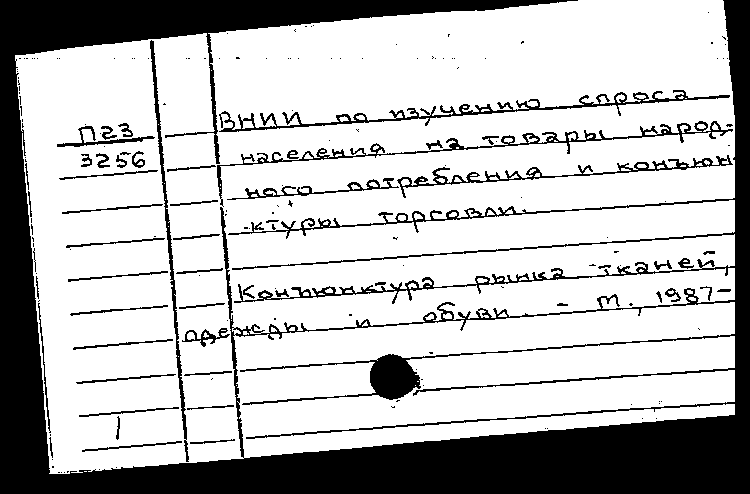 П23
3256
ВНИИ по изучению спроса
населения на товары народ-
ного потребления и конъюн-
ктуры торговли.
Конъюнктура рынка тканей,
одежды и обуви. - М., 1987-
1